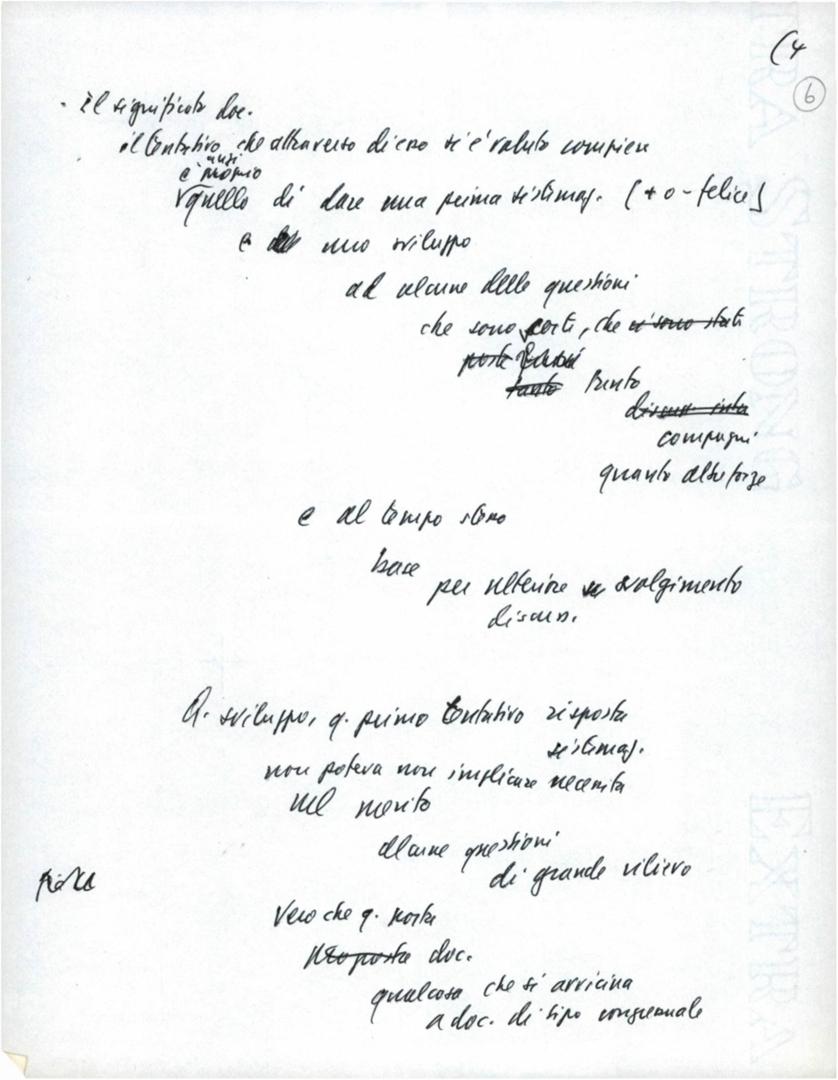 (4
6
· Il significato doc.
il tentativo, che attraverso di esso si è voluto compiere
anzi
è proprio
quello di dare una prima sistemaz. (+ o - felice)
e uno sviluppo
ad alcune delle questioni
che sono, che ci sono stati
poste
tanto tanto
compagni
quanto altre forze
e al tempo stesso
base
per ulteriore svolgimento
discuss.
Q. sviluppo, q. primo tentativo risposta
sistemaz.
non poteva non implicare necessità
nel merito
alcune questioni
di grande rilievo
Vero che q. nostra
proposta doc.
qualcosa che si avvicina
a doc. di tipo congressuale